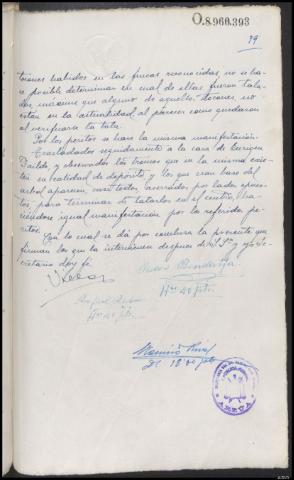 O.8.960.393
79
tocones habidos en las fincas reconocidas, no se ha-
ce posible determinar en cual de ellas fueron tala-
dos, máxime que alguno de aquellos tocones no
están en la actualidad al parecer como quedaron
al verificarse la tala.
Por los peritos se hace la misma manifestación.
Trasladados seguidamente a la casa de
y observados los troncos que en la misma exis-
ten en calidad de depósito y los que eran base del
árbol aparecen, casi todos, aserrados por lados opues-
tos para terminar de talarlos en el centro, ha-
ciéndose igual manifestación por los referidos pe-
ritos.
Con lo cual se da por conclusa la presente que
firman los que la intervienen después de S. Sª y yo Se-
cretario doy fe.